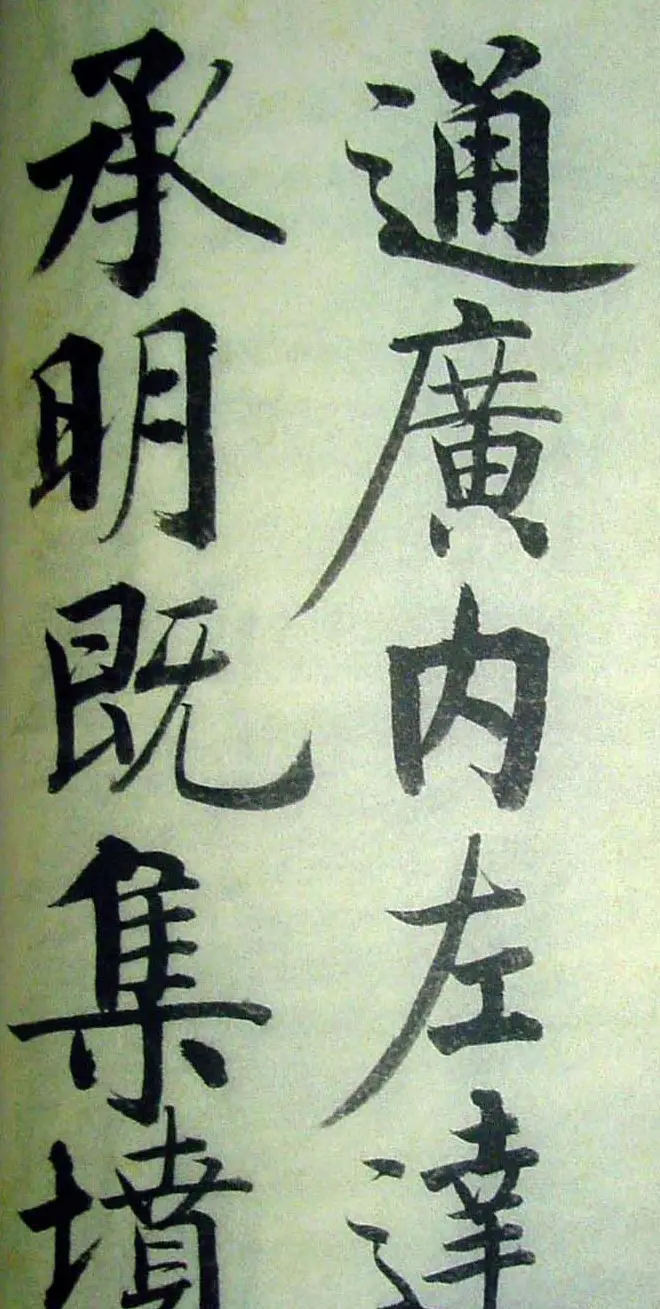 通廣内左達
承明既集墳